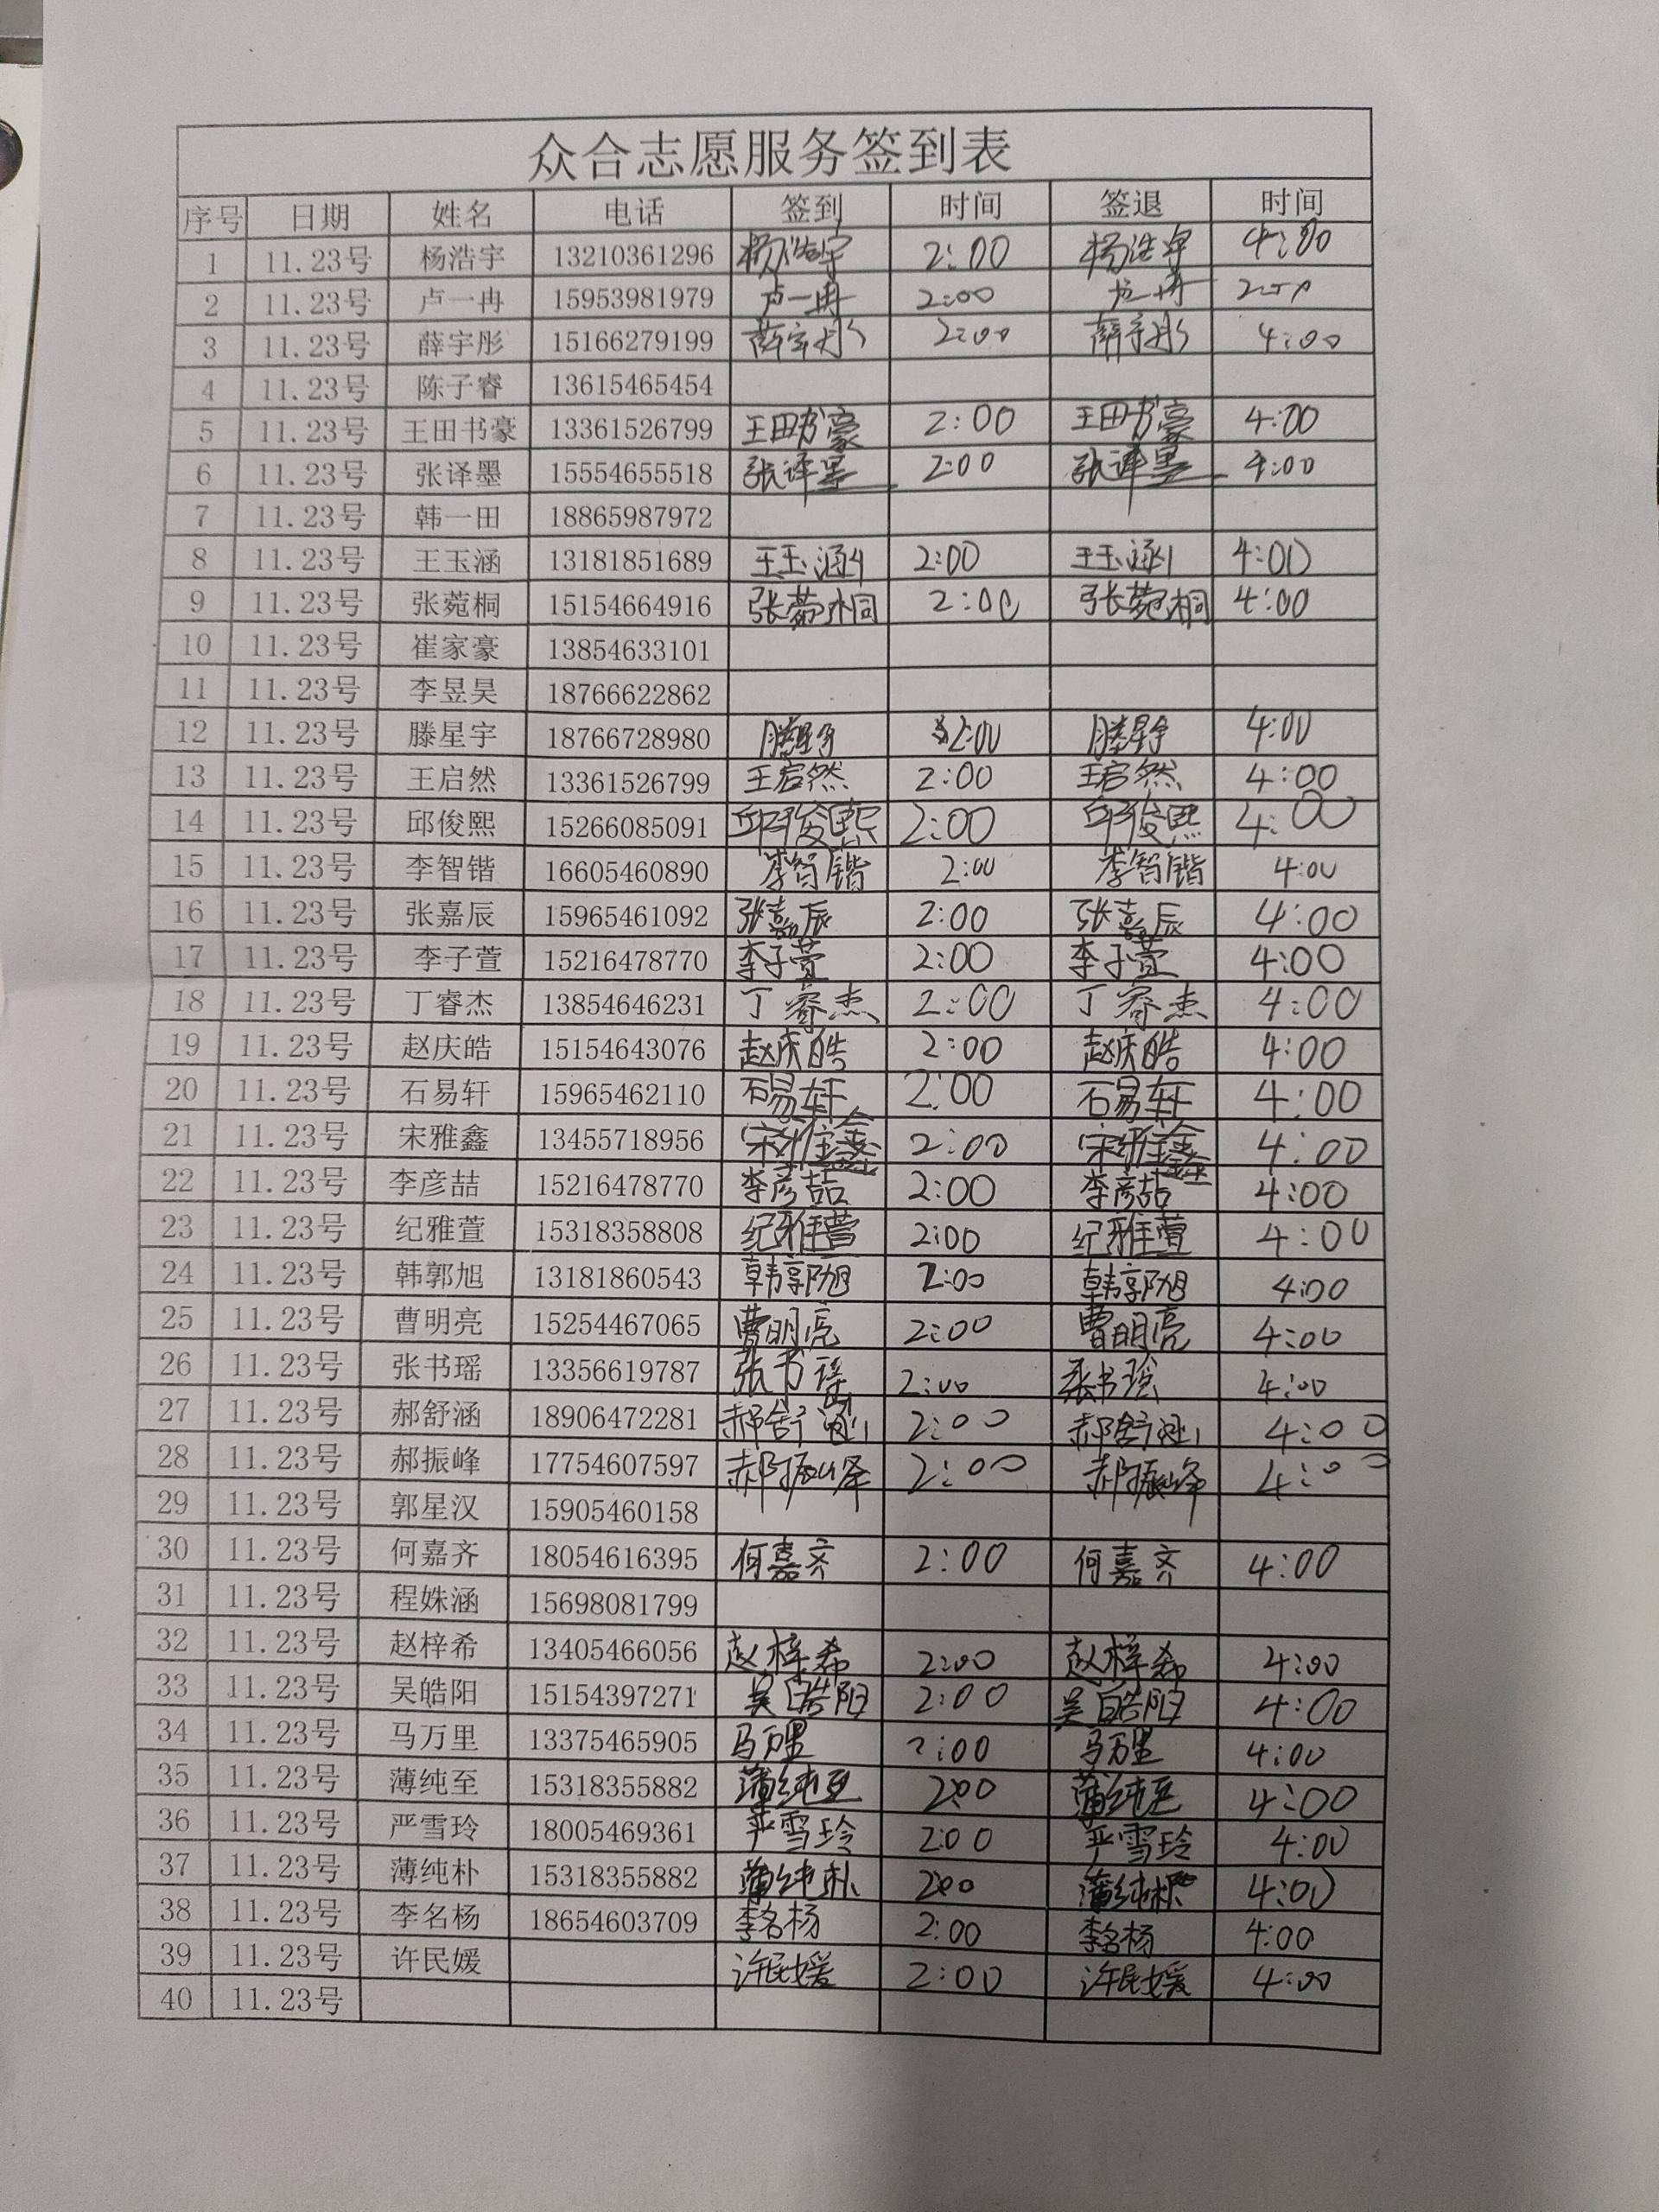 众合志愿服务签到表
序号 日期 姓名 电话 签到 时间 签退 时间
1 11.23号 杨浩宇 13210361296 杨浩宇 2:00 杨浩宇 4:00
2 11.23号 卢一冉 15953981979 卢一冉 2:00 卢一冉
3 11.23号 薛宇彤 15166279199 薛宇彤 2:00 薛宇彤 4:00
4 11.23号 陈子睿 13615465454
5 11.23号 王田书豪 13361526799 王田书豪 2:00 王田书豪 4:00
6 11.23号 张译墨 15554655518 张译墨 2:00 张译墨 4:00
7 11.23号 韩一田 18865987972
8 11.23号 王玉涵 13181851689 王玉涵 2:00 王玉涵 4:00
9 11.23号 张菀桐 15154664916 张菀桐 2:00 张菀桐 4:00
10 11.23号 崔家豪 13854633101
11 11.23号 李昱昊 18766622862
12 11.23号 滕星宇 18766728980 滕星宇 2:00 滕星宇 4:00
13 11.23号 王启然 13361526799 王启然 2:00 王启然 4:00
14 11.23号 邱俊熙 15266085091 邱俊熙 2:00 邱俊熙 4:00
15 11.23号 李智锴 16605460890 李智锴 2:00 李智锴 4:00
16 11.23号 张嘉辰 15965461092 张嘉辰 2:00 张嘉辰 4:00
17 11.23号 李子萱 15216478770 李子萱 2:00 李子萱 4:00
18 11.23号 丁睿杰 13854646231 丁睿杰 2:00 丁睿杰 4:00
19 11.23号 赵庆皓 15154643076 赵庆皓 2:00 赵庆皓 4:00
20 11.23号 石易轩 15965462110 石易轩 2:00 石易轩 4:00
21 11.23号 宋雅鑫 13455718956 宋雅鑫 2:00 宋雅鑫 4:00
22 11.23号 李彦喆 15216478770 李彦喆 2:00 李彦喆 4:00
23 11.23号 纪雅萱 15318358808 纪雅萱 2:00 纪雅萱 4:00
24 11.23号 韩郭旭 13181860543 韩郭旭 2:00 韩郭旭 4:00
25 11.23号 曹明亮 15254467065 曹明亮 2:00 曹明亮 4:00
26 11.23号 张书瑶 13356619787 张书瑶 2:00 张书瑶 4:00
27 11.23号 郝舒涵 18906472281 郝舒涵 2:00 郝舒涵 4:00
28 11.23号 郝振峰 17754607597 郝振峰 2:00 郝振峰 4:00
29 11.23号 郭星汉 15905460158
30 11.23号 何嘉齐 18054616395 何嘉齐 2:00 何嘉齐 4:00
31 11.23号 程姝涵 15698081799
32 11.23号 赵梓希 13405466056 赵梓希 2:00 赵梓希 4:00
33 11.23号 吴皓阳 15154397271 吴皓阳 2:00 吴皓阳 4:00
34 11.23号 马万里 13375465905 马万里 2:00 马万里 4:00
35 11.23号 薄纯至 15318355882 薄纯至 2:00 薄纯至 4:00
36 11.23号 严雪玲 18005469361 严雪玲 2:00 严雪玲 4:00
37 11.23号 薄纯朴 15318355882 薄纯朴 2:00 薄纯朴 4:00
38 11.23号 李名杨 18654603709 李名杨 2:00 李名杨 4:00
39 11.23号 许民媛 许民媛 2:00 许民媛 4:00
40 11.23号